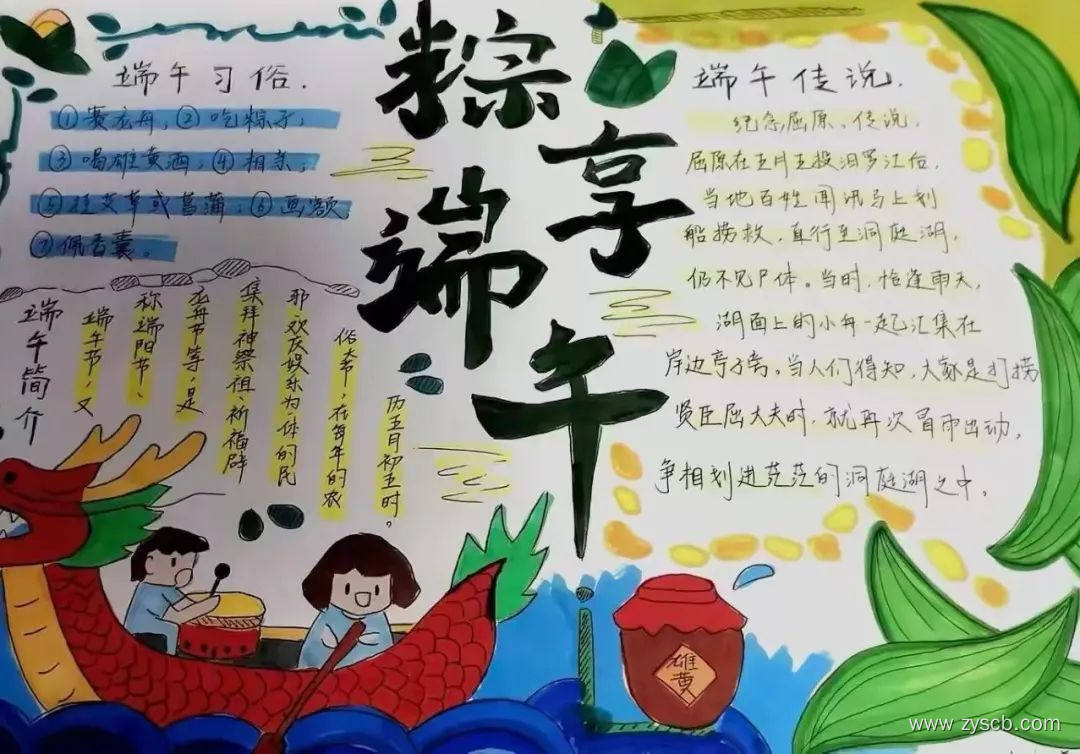 粽享
端午
端午习俗.
①赛龙舟,②吃粽子;
③喝雄黄酒;④相亲;
⑤挂艾草或菖蒲;⑥画额
⑦佩香囊。
端午简介
端午节,又
称端阳节、
龙舟节等,是
集拜神祭祖、祈福辟
邪、欢庆娱乐为体的民
俗大节,在每年的农
历五月初五时。
端午传说.
纪念屈原、传说,
屈原在五月五投汨罗江后,
当地百姓闻讯马上划
船捞救,直行至洞庭湖,
仍不见尸体。当时,恰逢雨天,
湖面上的小舟一起汇集在
岸边亭子旁。当人们得知,大家是打捞
贤臣屈大夫时,就再次冒雨出动,
争相划进茫茫的洞庭湖之中。
雄黄
www.zyscb.com